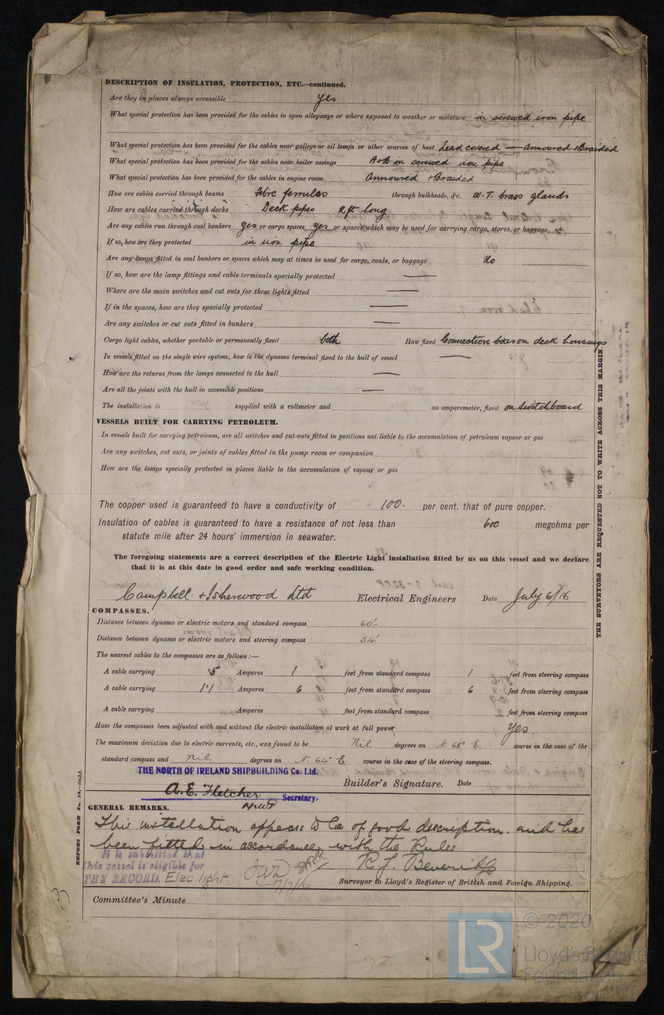 DESCRIPTION OF INSULATION, PROTECTION, ETC.—continued.
Are they in places always accessible yes
What special protection has been provided for the cables in open alleyways or where exposed to weather or moisture in screwed iron pipe
What special protection has been provided for the cables near galleys or oil lamps or other sources of heat Lead covered — Armoured & Braided
What special protection has been provided for the cables near boiler casings A & B in screwed iron pipe
What special protection has been provided for the cables in engine room Armoured & Braided
How are cables carried through beams ferrules through bulkheads, &c. W.T. brass glands
How are cables carried through decks Deck pipes 2ft long
Are any cables run through coal bunkers yes or cargo spaces yes or spaces which may be used for carrying cargo, stores, or baggage
If so, how are they protected in iron pipe
Are any lamps fitted in coal bunkers or spaces which may at times be used for cargo, coals, or baggage No
If so, how are the lamp fittings and cable terminals specially protected —
Where are the main switches and cut outs for these lights fitted —
If in the spaces, how are they specially protected —
Are any switches or cut outs fitted in bunkers —
Cargo light cables, whether portable or permanently fixed both How fixed Connection boxes on deck housings
In vessels fitted on the single wire system, how is the dynamo terminal fixed to the hull of vessel —
How are the returns from the lamps connected to the hull —
Are all the joints with the hull in accessible positions —
The installation is supplied with a voltmeter and an amperemeter, fixed on switchboard
VESSELS BUILT FOR CARRYING PETROLEUM.
In vessels built for carrying petroleum, are all switches and cut-outs fitted in positions not liable to the accumulation of petroleum vapour or gas
Are any switches, cut outs, or joints of cables fitted in the pump room or companion
How are the lamps specially protected in places liable to the accumulation of vapour or gas
The copper used is guaranteed to have a conductivity of 100. per cent. that of pure copper.
Insulation of cables is guaranteed to have a resistance of not less than 600 megohms per
statute mile after 24 hours' immersion in seawater.
The foregoing statements are a correct description of the Electric Light installation fitted by us on this vessel and we declare
that it is at this date in good order and safe working condition.
Campbell & Isherwood Ltd Electrical Engineers Date July 6/16
COMPASSES.
Distance between dynamo or electric motors and standard compass 60'
Distance between dynamo or electric motors and steering compass 54'
The nearest cables to the compasses are as follows:—
A cable carrying .5 Amperes 1 feet from standard compass 1 feet from steering compass
A cable carrying 1.1 Amperes 6 feet from standard compass 6 feet from steering compass
A cable carrying Amperes feet from standard compass feet from steering compass
Have the compasses been adjusted with and without the electric installation at work at full power Yes.
The maximum deviation due to electric currents, etc., was found to be Nil. degrees on N 68° E. course in the case of the
standard compass and Nil. degrees on N. 64° E. course in the case of the steering compass.
THE NORTH OF IRELAND SHIPBUILDING Co. Ltd.
A.E. Fletcher Secretary. Builder's Signature. Date
GENERAL REMARKS.
This installation appears to be of good description and has
been fitted in accordance with the Rules
It is submitted that
this vessel is eligible for
THE RECORD. Elec light. 7/7/16
R. J. Beveridge
Surveyor to Lloyd's Register of British and Foreign Shipping.
Committee's Minute
THE SURVEYORS ARE REQUESTED NOT TO WRITE ACROSS THIS MARGIN
LR
© 2020
Lloyd's Register
Foundation